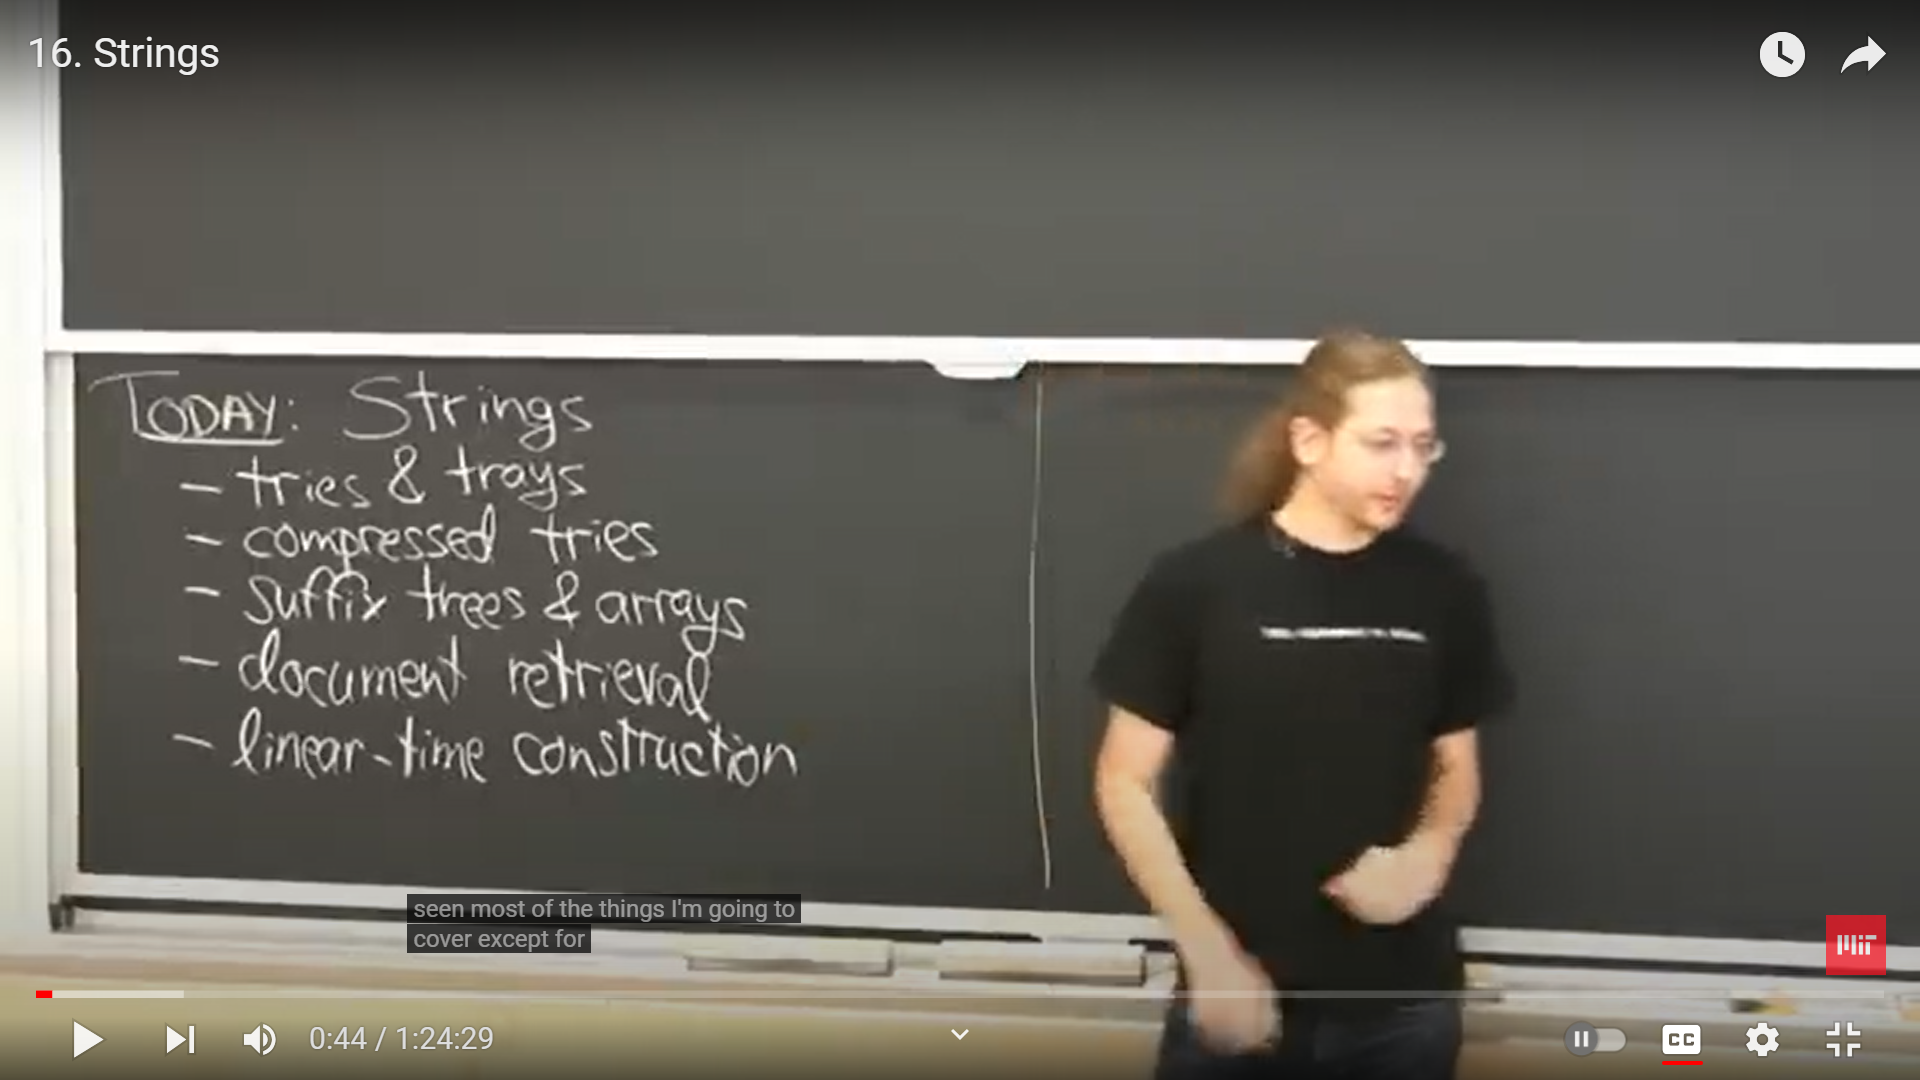 16. Strings
TODAY: Strings
– tries & trays
– compressed tries
– suffix trees & arrays
– document retrieval
– linear-time construction
seen most of the things I'm going to
cover except for
MIT
0:44 / 1:24:29
CC